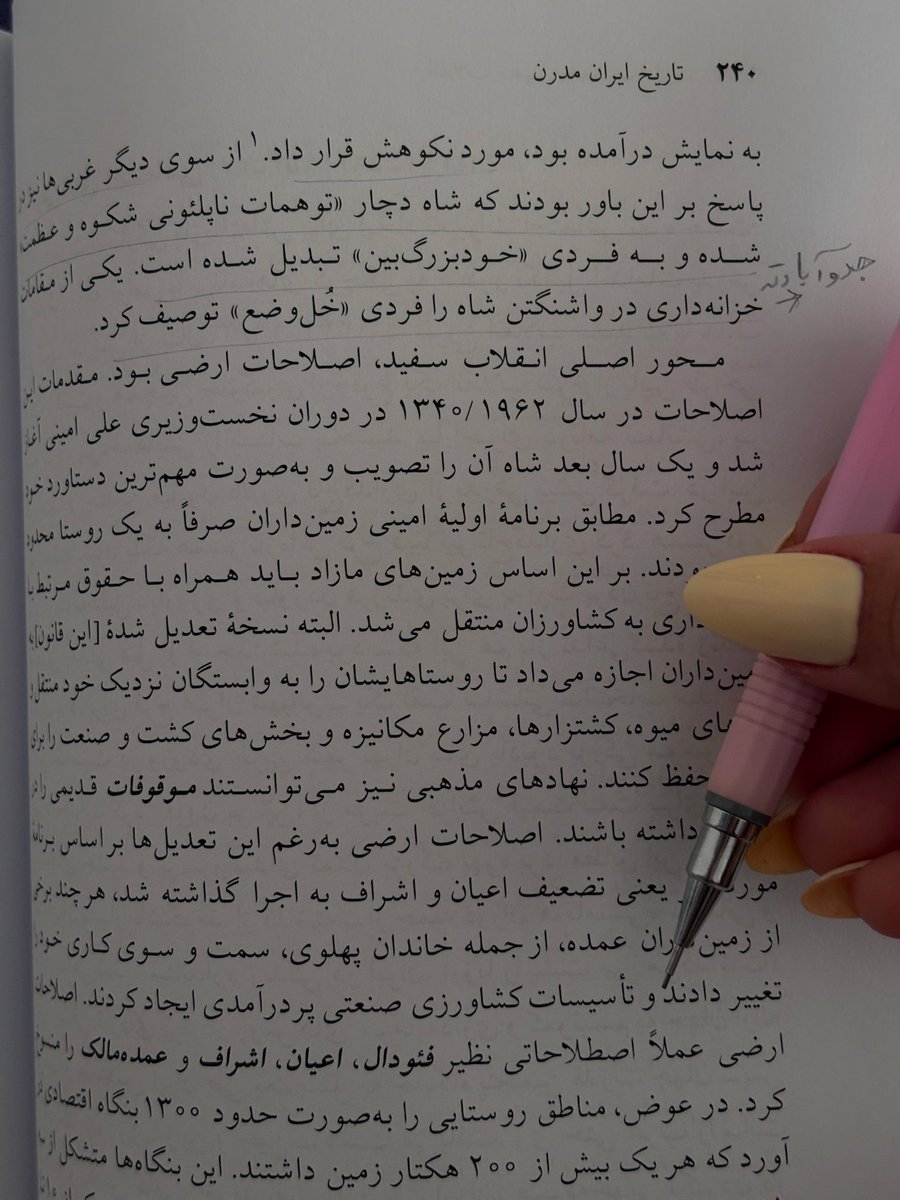 ۲۴۰ تاریخ ایران مدرن
به نمایش درآمده بود، مورد نکوهش قرار داد.۱ از سوی دیگر غربی‌ها نیز در
پاسخ بر این باور بودند که شاه دچار «توهمات ناپلئونی شکوه و عظمت»
شده و به فردی «خودبزرگ‌بین» تبدیل شده است. یکی از مقامات
خزانه‌داری در واشنگتن شاه را فردی «خُل‌وضع» توصیف کرد.
محور اصلی انقلاب سفید، اصلاحات ارضی بود. مقدمات این
اصلاحات در سال ۱۳۴۰/۱۹۶۲ در دوران نخست‌وزیری علی امینی آغاز
شد و یک سال بعد شاه آن را تصویب و به‌صورت مهم‌ترین دستاورد خود
مطرح کرد. مطابق برنامهٔ اولیهٔ امینی زمین‌داران صرفاً به یک روستا محدود
بر این اساس زمین‌های مازاد باید همراه با حقوق مرتبط با
به کشاورزان منتقل می‌شد. البته نسخهٔ تعدیل شدهٔ [این قانون] به
اجازه می‌داد تا روستاهایشان را به وابستگان نزدیک خود منتقل و
میوه، کشتزارها، مزارع مکانیزه و بخش‌های کشت و صنعت را برای
حفظ کنند. نهادهای مذهبی نیز می‌توانستند موقوفات قدیمی را در
داشته باشند. اصلاحات ارضی به‌رغم این تعدیل‌ها بر اساس برنامهٔ
یعنی تضعیف اعیان و اشراف به اجرا گذاشته شد، هر چند برخی
از زمین‌داران عمده، از جمله خاندان پهلوی، سمت و سوی کاری خود را
تغییر دادند و تأسیسات کشاورزی صنعتی پردرآمدی ایجاد کردند. اصلاحات
ارضی عملاً اصطلاحاتی نظیر فئودال، اعیان، اشراف و عمده‌مالک را منسوخ
کرد. در عوض، مناطق روستایی را به‌صورت حدود ۱۳۰۰ بنگاه اقتصادی
آورد که هر یک بیش از ۲۰۰ هکتار زمین داشتند. این بنگاه‌ها متشکل از